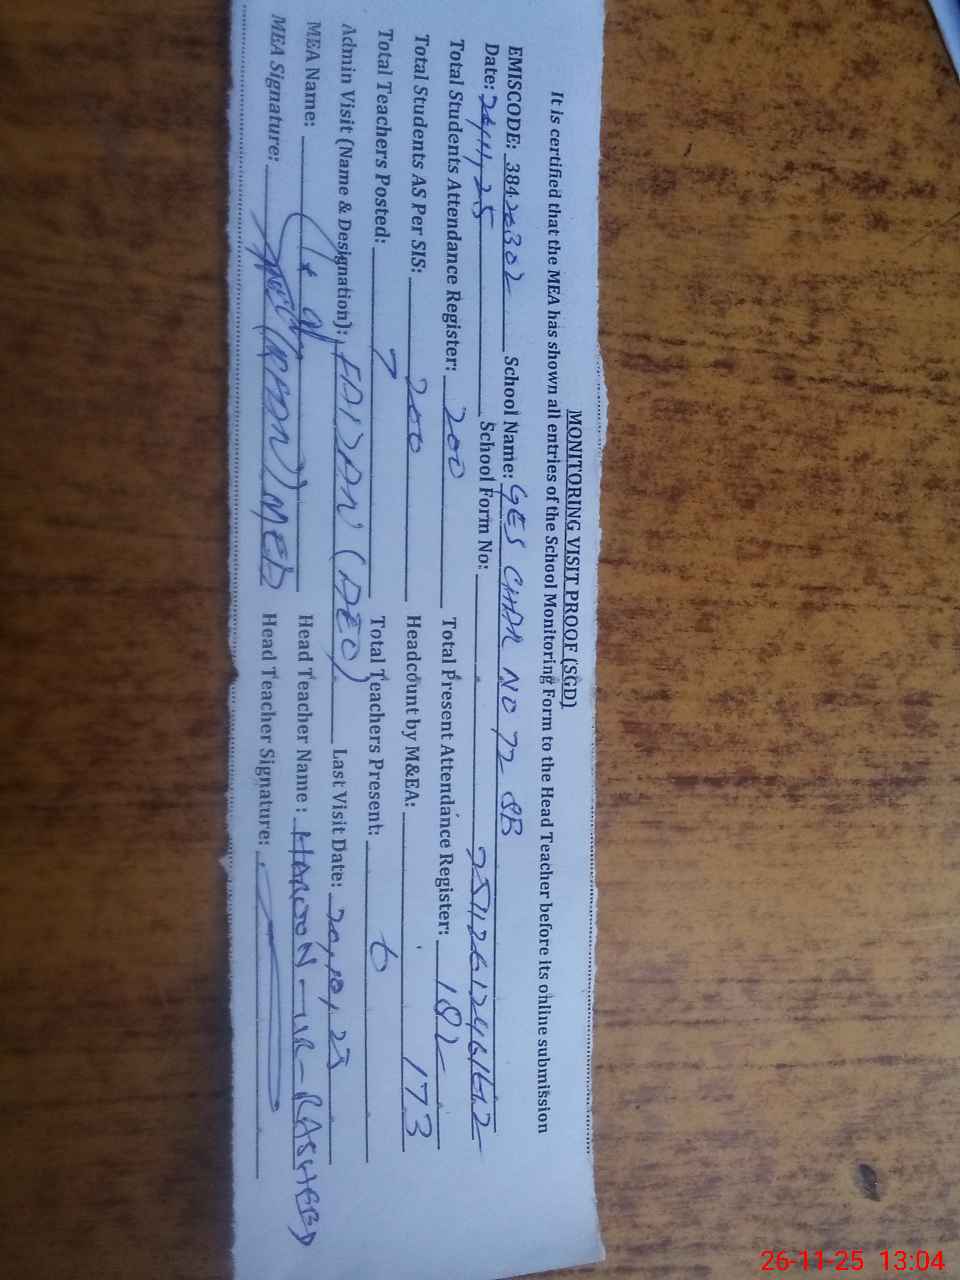 MONITORING VISIT PROOF (SGD)
It is certified that the MEA has shown all entries of the School Monitoring Form to the Head Teacher before its online submission
EMISCODE: 38420302 School Name: GES CHAK NO 72 SB
Date: 26,11,25 School Form No: 2511261246162
Total Students Attendance Register: 200 Total Present Attendance Register: 182
Total Students AS Per SIS: 200 Headcount by M&EA: 173
Total Teachers Posted: 7 Total Teachers Present: 6
Admin Visit (Name & Designation): FAIZAN (DEO) Last Visit Date: 20,10,25
MEA Name: Head Teacher Name: HAROON-UR-RASHEED
MEA Signature: Head Teacher Signature:
26-11-25 13:04